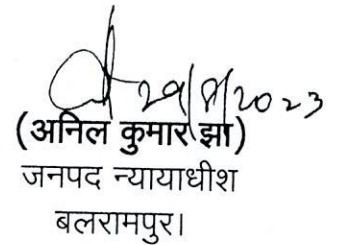 29/8/2023
(अनिल कुमार झा)
जनपद न्यायाधीश
बलरामपुर।